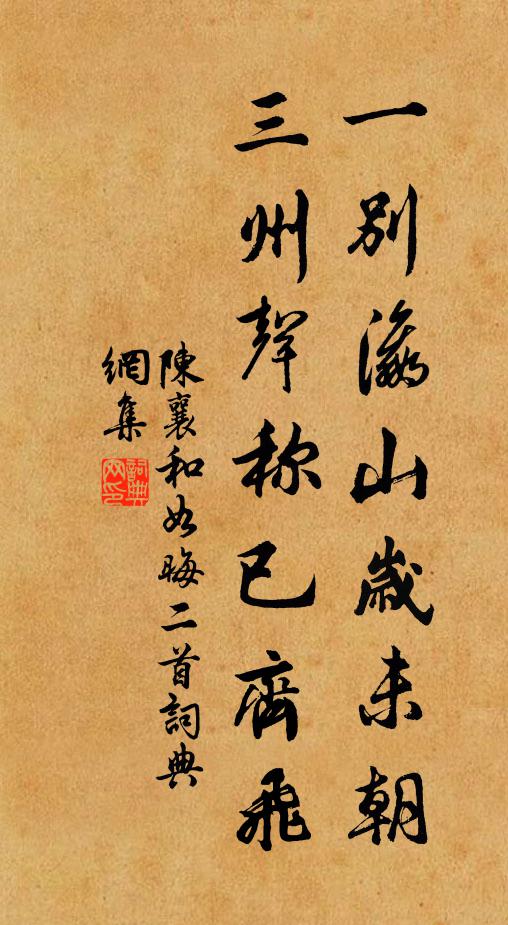 一别瀛山歲未朝
三州聲称已齊飛
陳襄和如晦二首詞典
網集
詞典
网印